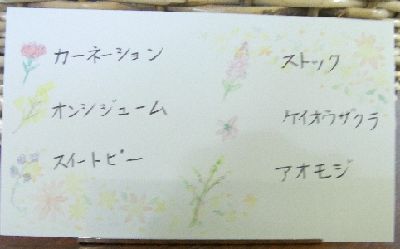 カーネーション
オンシジューム
スイートピー
ストック
ケイオウザクラ
アオモジ